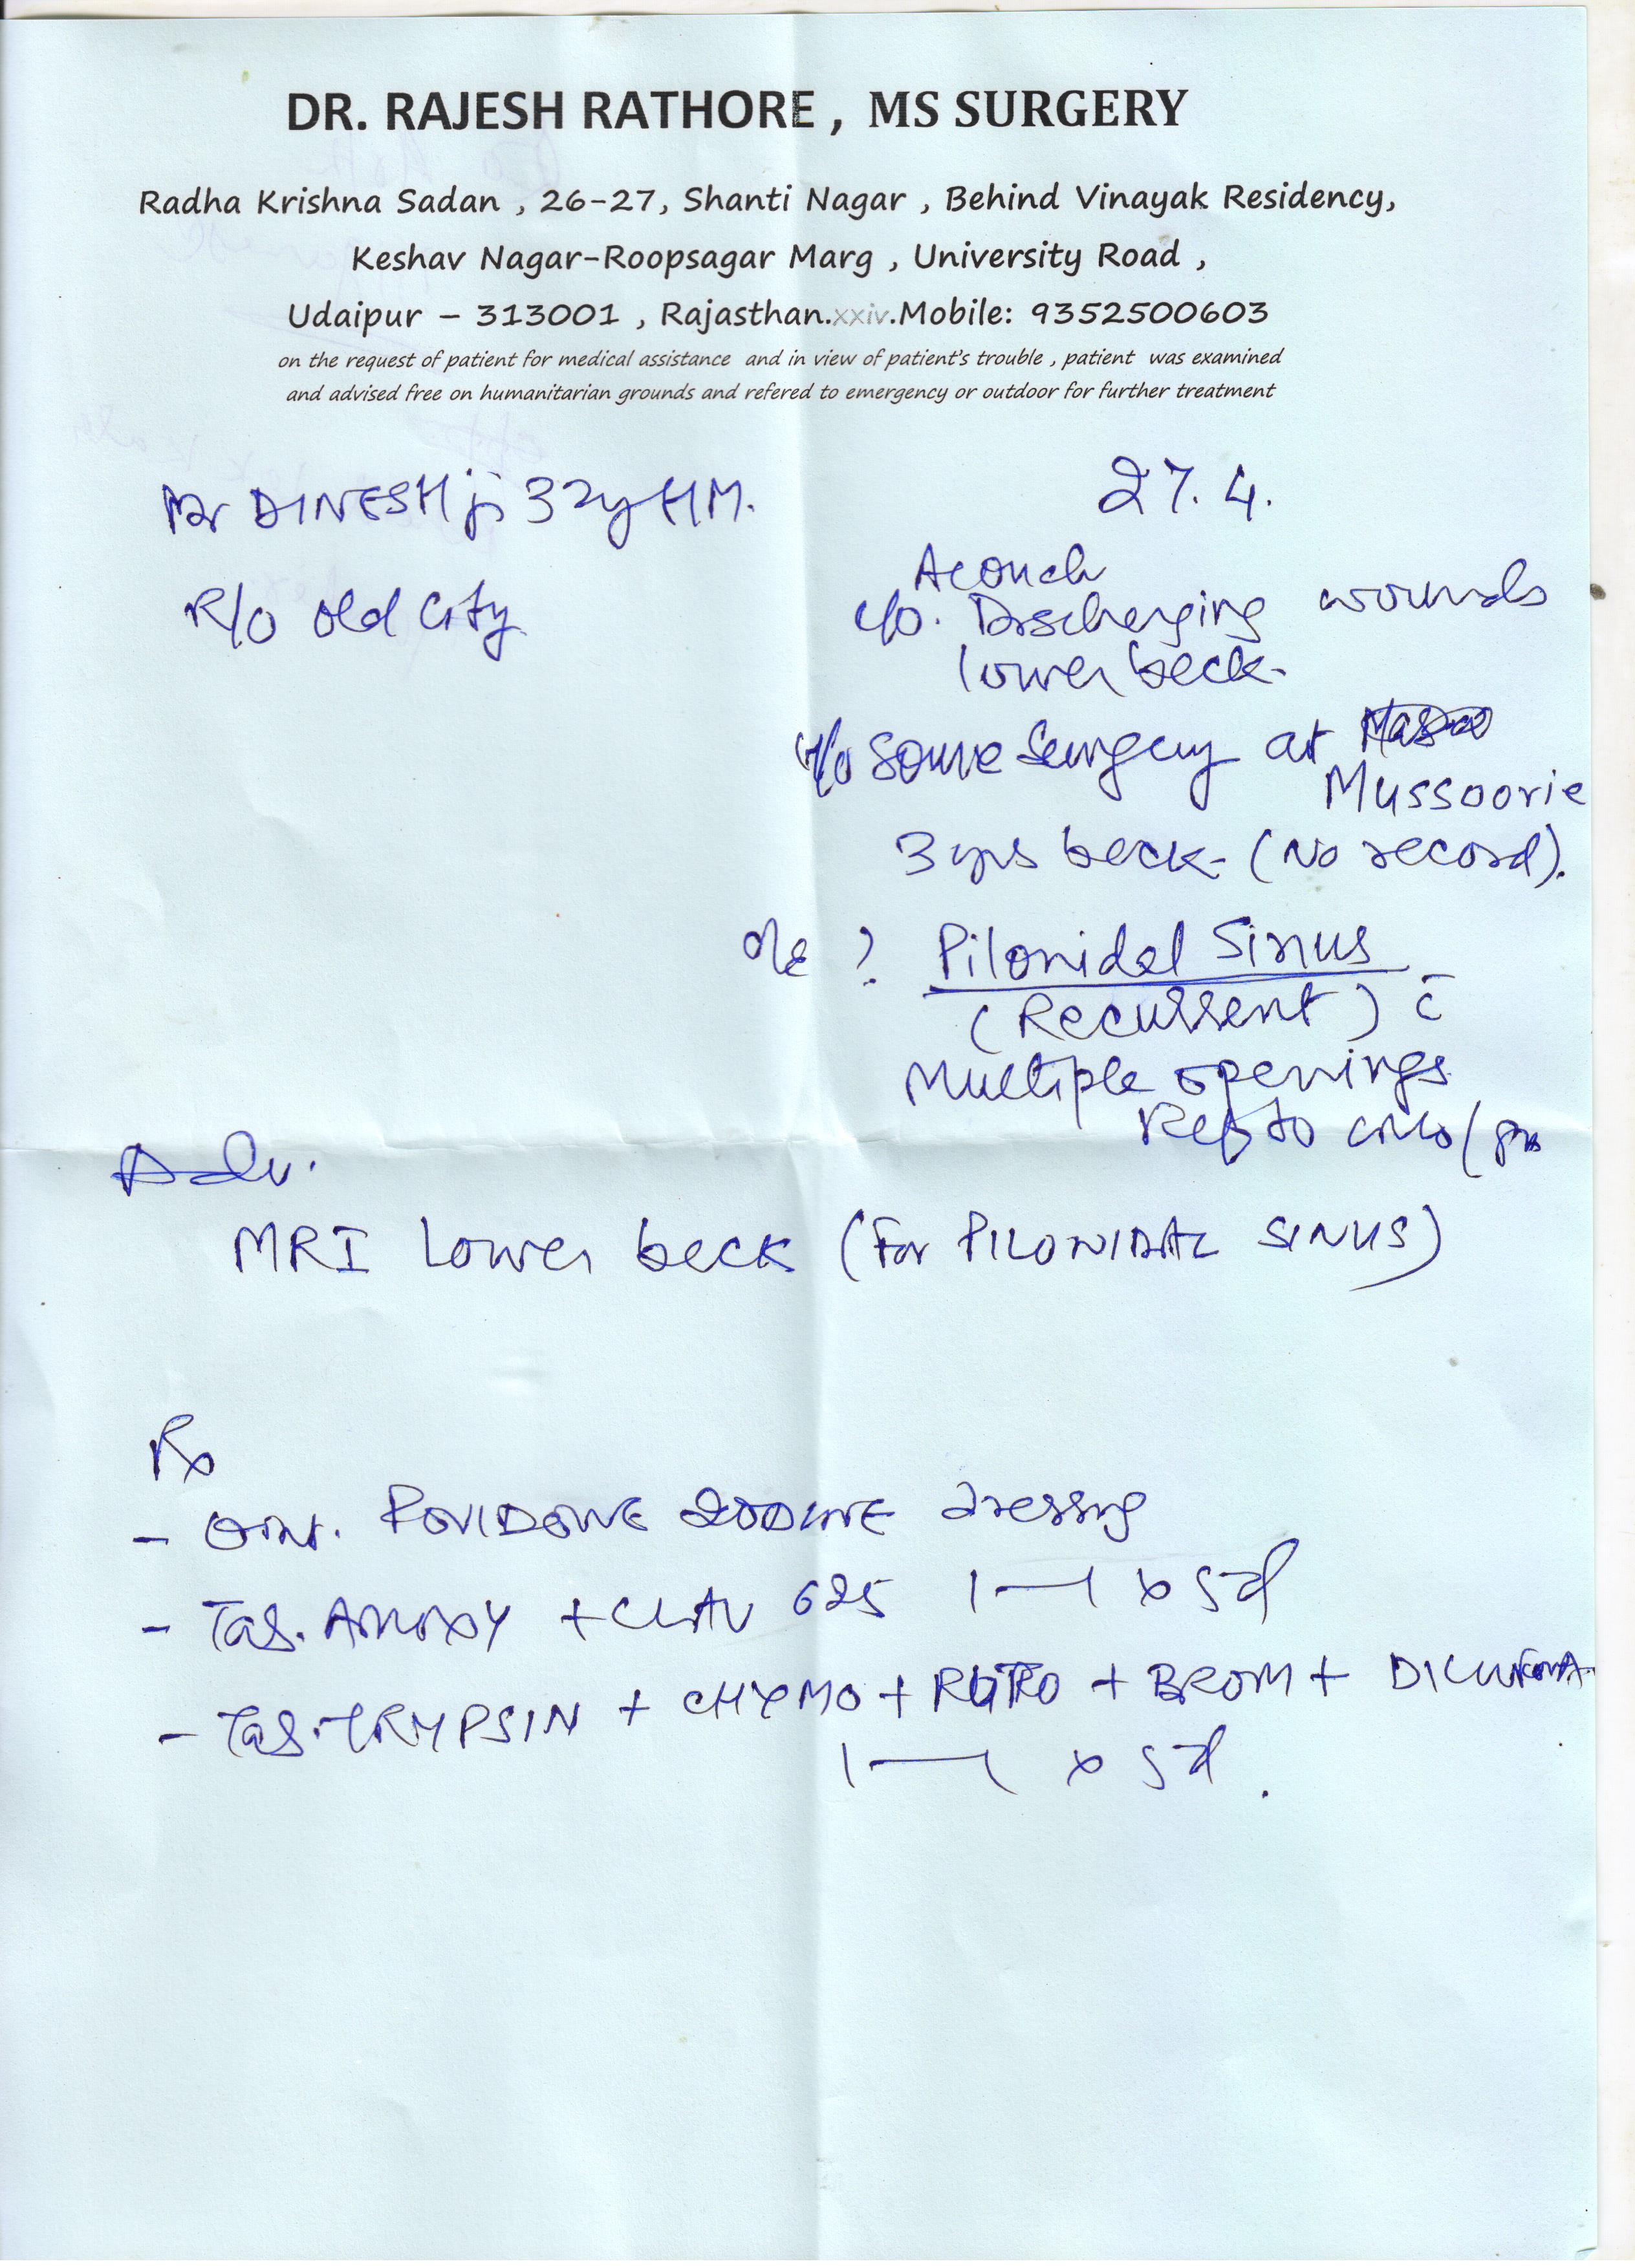 DR. RAJESH RATHORE , MS SURGERY
Radha Krishna Sadan , 26-27, Shanti Nagar , Behind Vinayak Residency,
Keshav Nagar-Roopsagar Marg , University Road ,
Udaipur - 313001 , Rajasthan.xxiv.Mobile: 9352500603
on the request of patient for medical assistance and in view of patient's trouble , patient was examined
and advised free on humanitarian grounds and refered to emergency or outdoor for further treatment
Mr DINESH ji 32y HM.
27.4.
R/o old City
c/o. Discherging wounds
lower beck-
H/o some Surgery at
Mussoorie
3 yrs beck- (No record).
O/e ? Pilonidel Sinus
(Recurrent) c̄
Multiple openings
Ref to
Adv.
MRI Lower beck (For PILONIDAL SINUS)
Rx
- Oint. POVIDONE IODINE dressing
- Tab. AMOXY + CLAV 625 1—1 x 5d
- Tab. TRYPSIN + CHYMO + RUTO + BROM + DICLOFENA
1—1 x 5d.